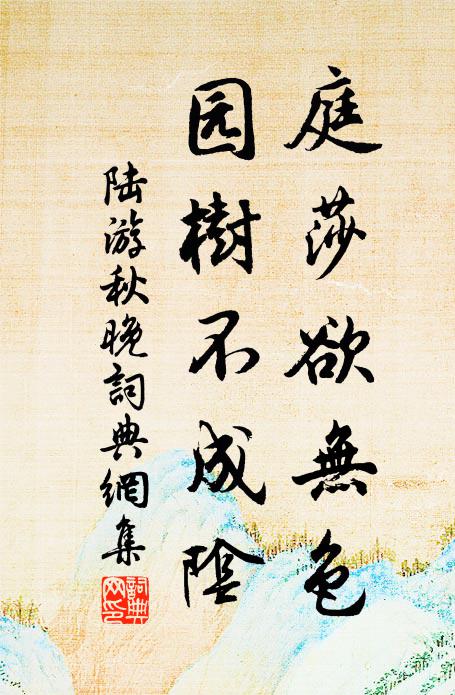 庭莎欲無色
园樹不成陰
陆游秋晚詞典網集
詞典網印